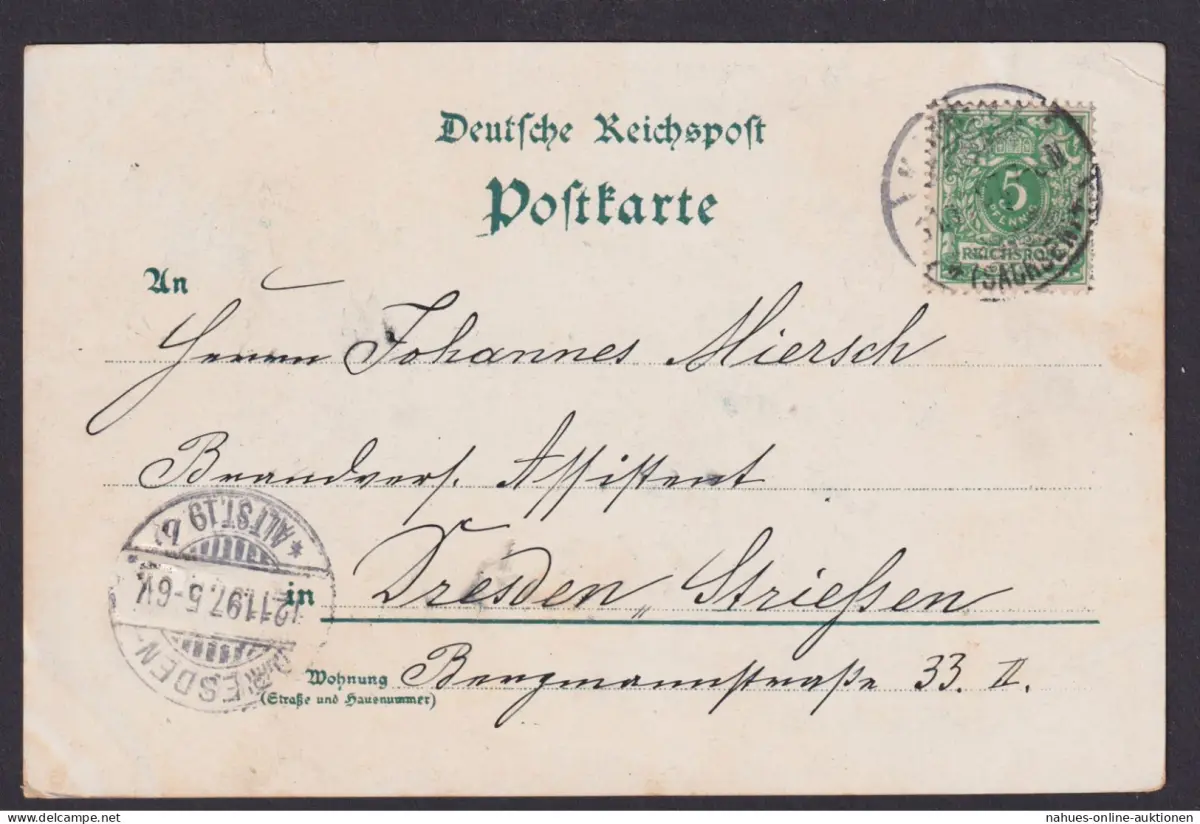 Deutsche Reichspost
Postkarte
5
PFENNIG
REICHSPOST
(SACHSEN)
An
Herrn Johannes Miersch
Brandvers. Assistent
in Dresden, Strießen
Wohnung Bergmannstraße 33. II.
(Straße und Hausnummer)
DRESDEN-
12.11.97.5-6V.
*ALTST.19
nahues-online-auktionen